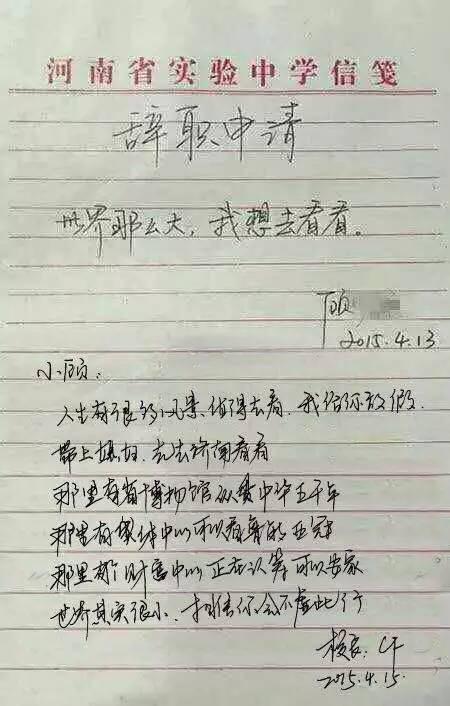 河南省实验中学信笺
辞职申请
世界那么大，我想去看看。
顾
2015.4.13
小顾：
人生有很多风景值得去看，我给你放假.
带上媳妇，先去济南看看
那里有省博物馆 中华五千年
那里有奥体中心可以看鲁能亚冠
那里有个财富中心正在认筹可以安家
世界其实很小，相信你会不虚此行
校长：
2015.4.15.